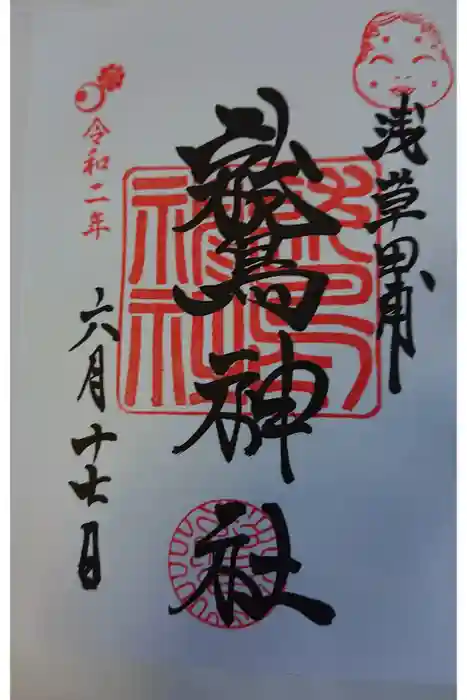 浅草田甫
鷲神社
鷲神社
令和二年
六月十七日